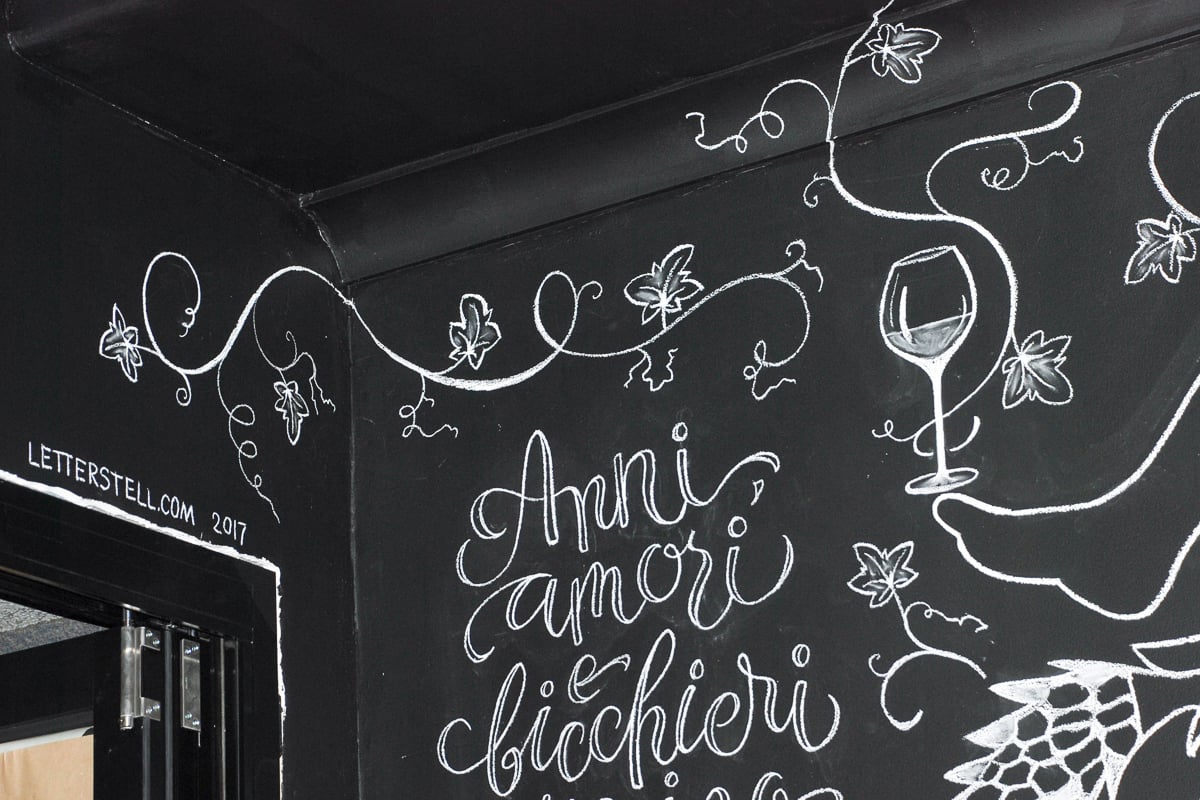 LETTERSTELL.COM 2017
Anni,
amori
e
bicchieri